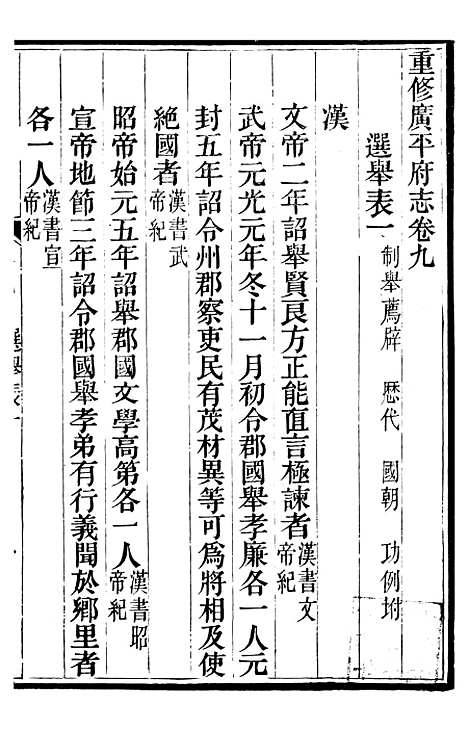 重修廣平府志卷九
選舉表一 制舉薦辟 歷代 國朝 功例坿
漢
文帝二年詔舉賢良方正能直言極諫者漢書文帝紀
武帝元光元年冬十一月初令郡國舉孝廉各一人元
封五年詔令州郡察吏民有茂材異等可為將相及使
絕國者漢書武帝紀
昭帝始元五年詔舉郡國文學高第各一人漢書昭帝紀
宣帝地節三年詔令郡國舉孝弟有行義聞於鄉里者
各一人漢書宣帝紀